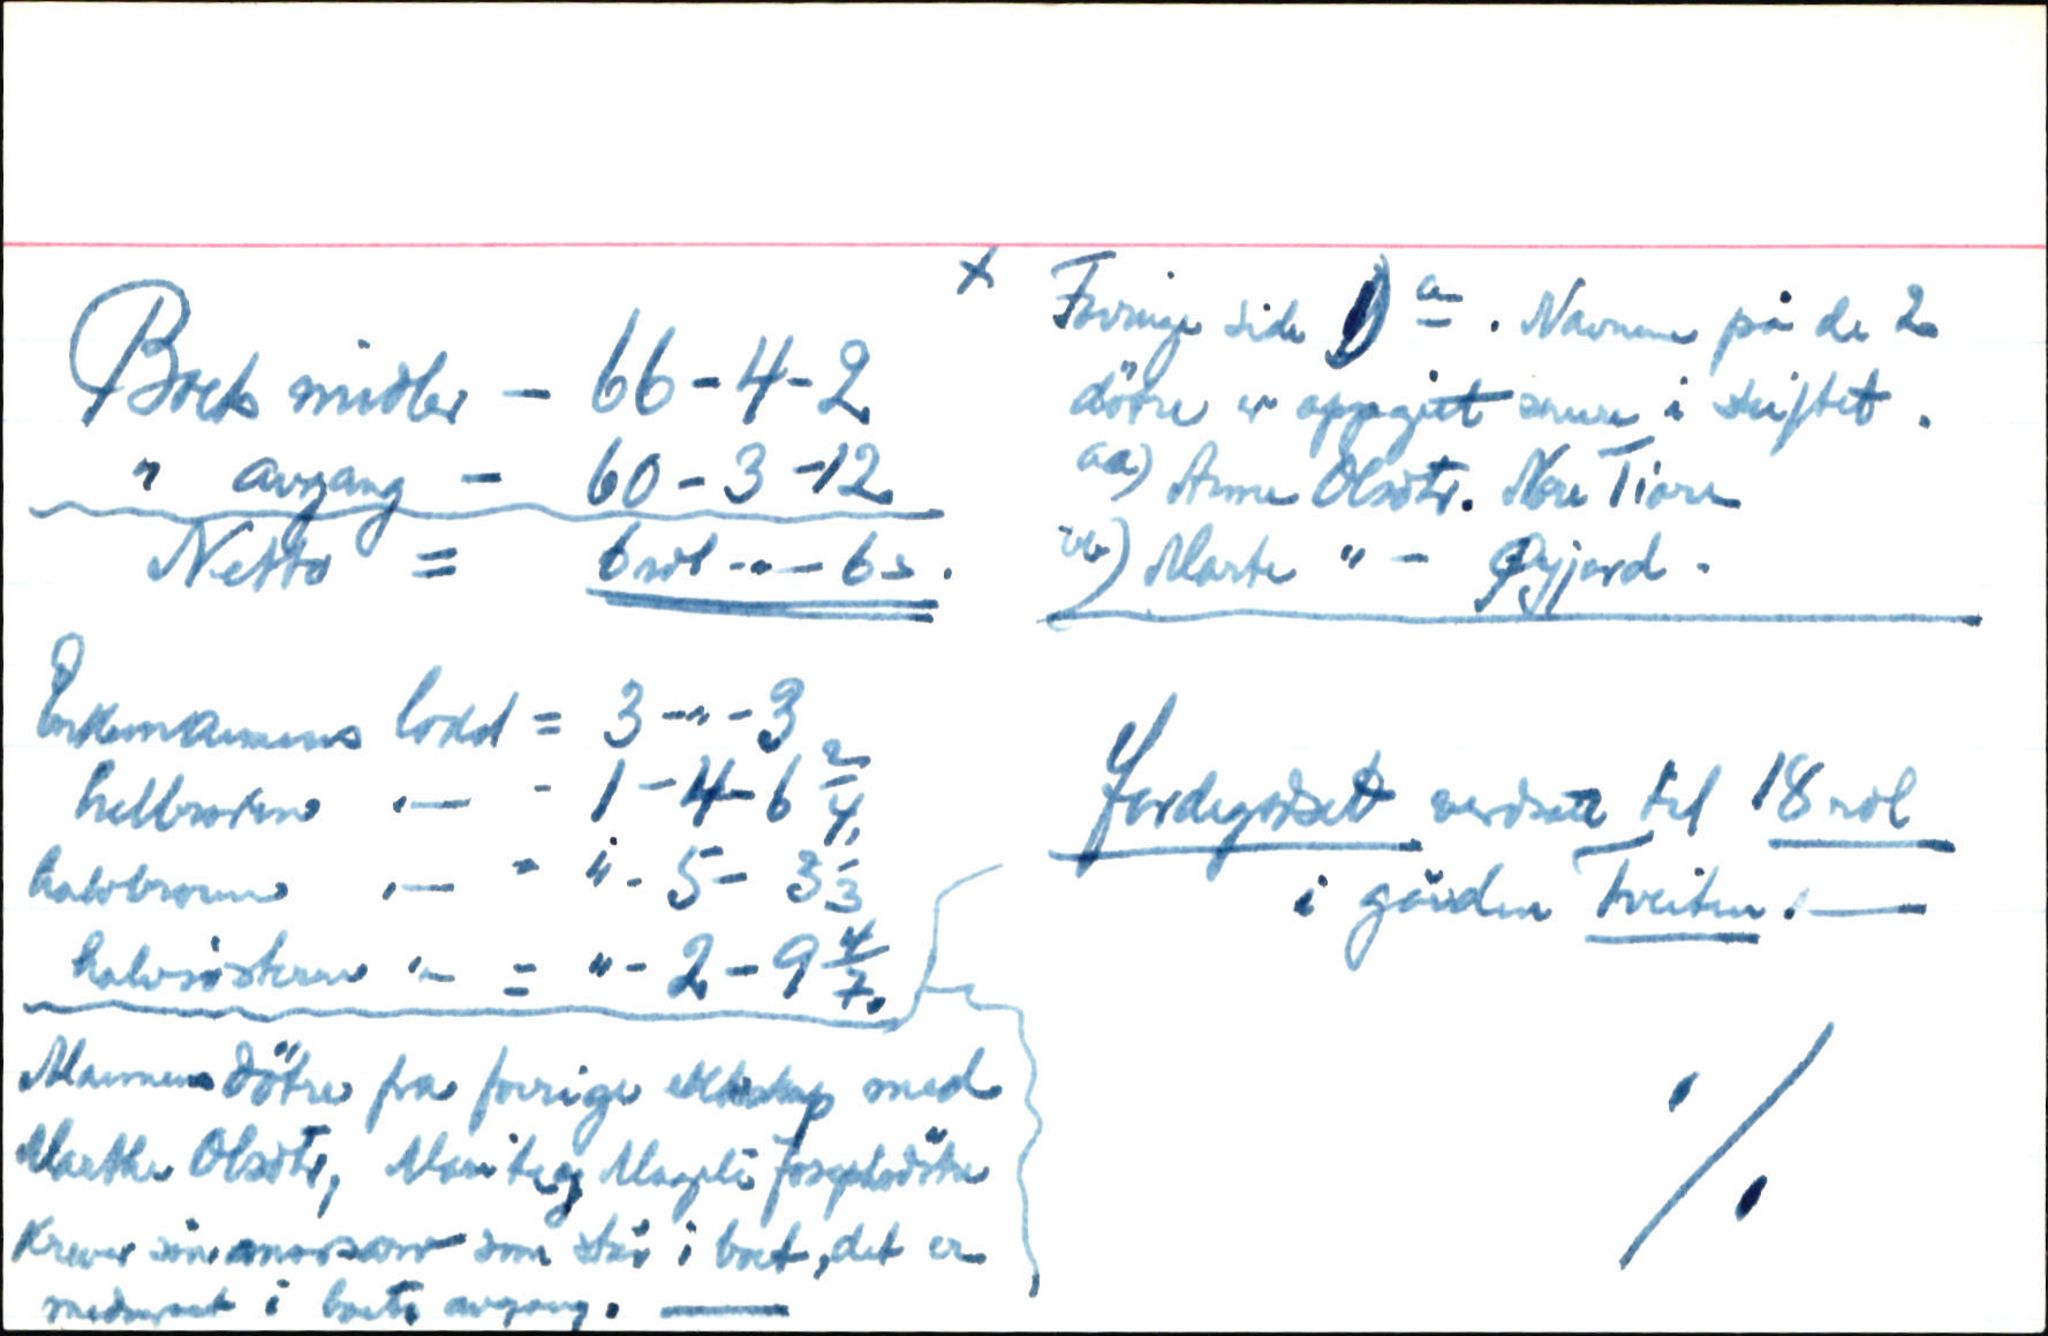 Boets midler - 66-4-2
" avgang - 60-3-12
Netto = 6 rdl - " - 6 s.
Enkemannens lodd = 3 - " - 3
helbroren " — - 1-4-6 2/4,
halvbroren " — " " - 5 - 3 1/3
halvsisteren " — = " - 2 - 9 4/7.
Mannens døtre fra forrige ekteskap med
Marthe Olsdtr, Marit og Magdli Josephsdøtre
krever sin morsarv som står i boet, det er
medregnet i boets avgang. —
x Forrige side 1) a. Navnene på de 2
døtre er oppgitt senere i skiftet.
aa) Anne Olsdtr. Nere Tiøre
bb) Marte " - Øyjord.
Jordegodset verdsatt til 18 rdl
i gården Tveiten. —
·/·